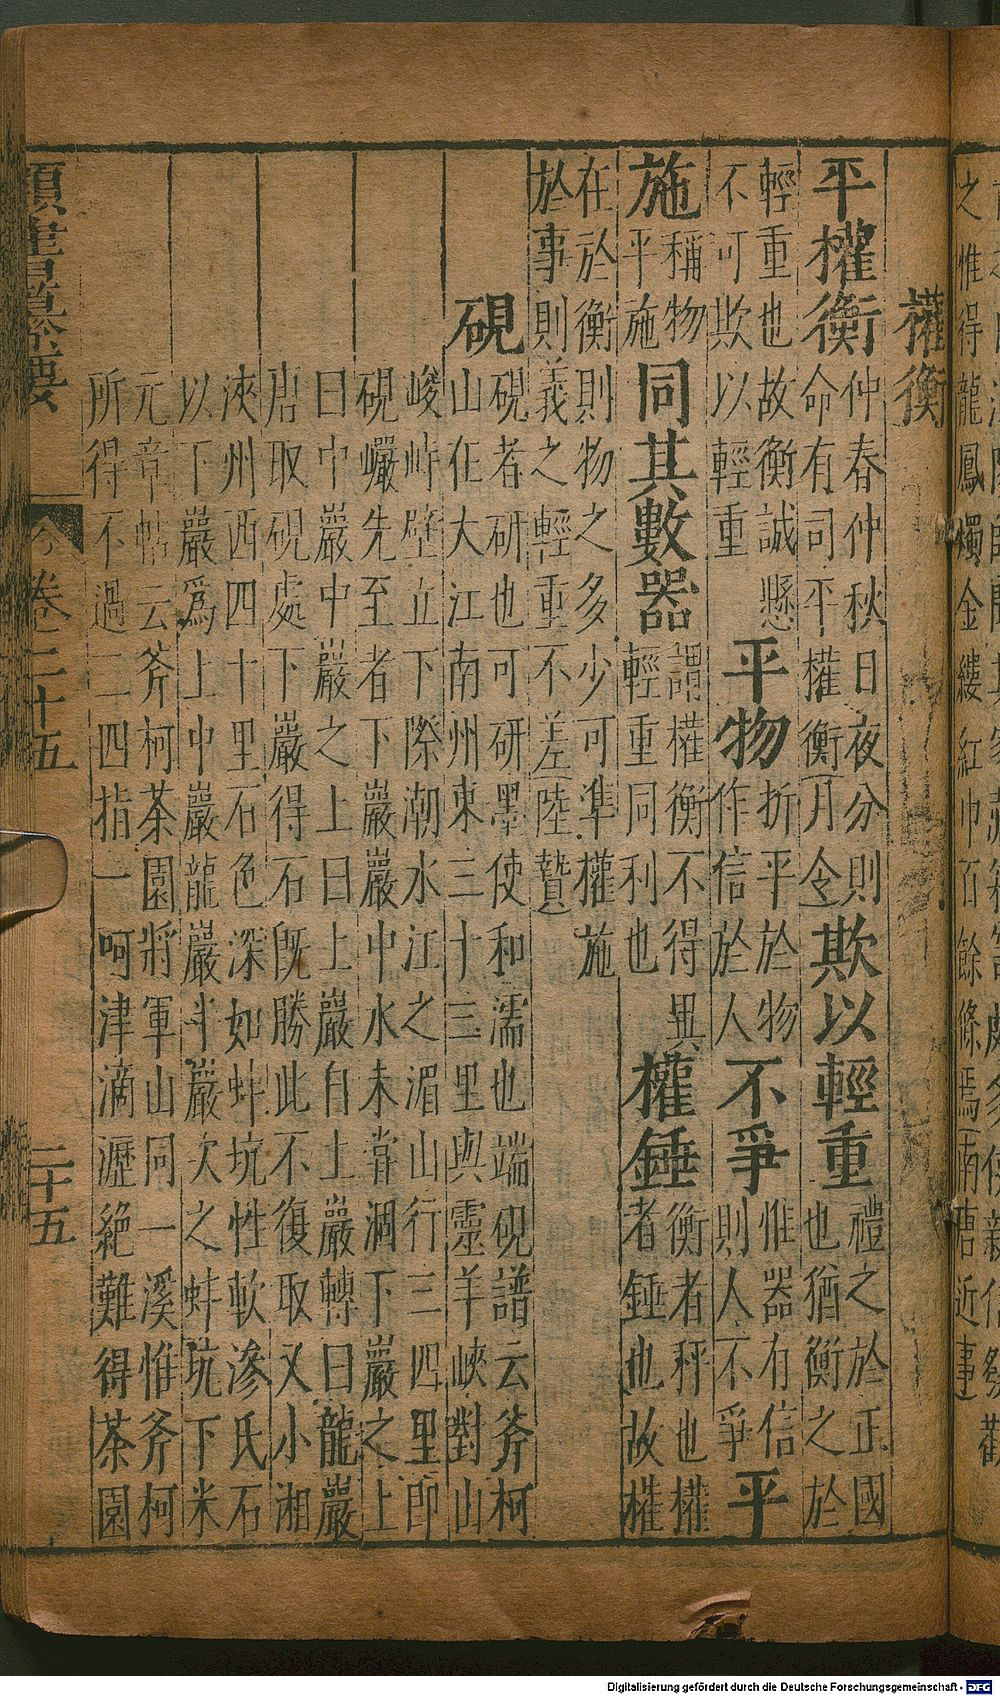 之惟得龍鳳燭金縷紅巾百餘條焉(南唐近事)
權衡
平權衡
仲春仲秋日夜分則
命有司平權衡(月令)
欺以輕重
禮之於正國
也猶衡之於
輕重也故衡誠懸
不可欺以輕重
平物
折平於物
作信於人
不爭
惟器有信
則人不爭
平
施
稱物
平施
同其數器
謂權衡不得異
輕重同利也
權錘
衡者秤也權
者錘也故權
在於衡則物之多少可準權施
於事則義之輕重不差(陸贄)
硯
硯者研也可研墨使和濡也端硯譜云斧柯
山在大江南州東三十三里與靈羊峽對山
峻峙壁立下際潮水江之湄山行三四里即
硯巖先至者下巖巖中水未嘗涸下巖之上
曰中巖中巖之上曰上巖自上巖轉曰龍巖
唐取硯處下巖得石既勝此不復取又小湘
浹州西四十里石色深如蚌坑性軟滲氏石
以下巖爲上中巖龍巖半巖次之蚌坑下米
元章帖云斧柯茶園將軍山同一溪惟斧柯
所得不過二四指一呵津滴瀝絕難得茶園
卷二十五
二十五
Digitalisierung gefördert durch die Deutsche Forschungsgemeinschaft - DFG